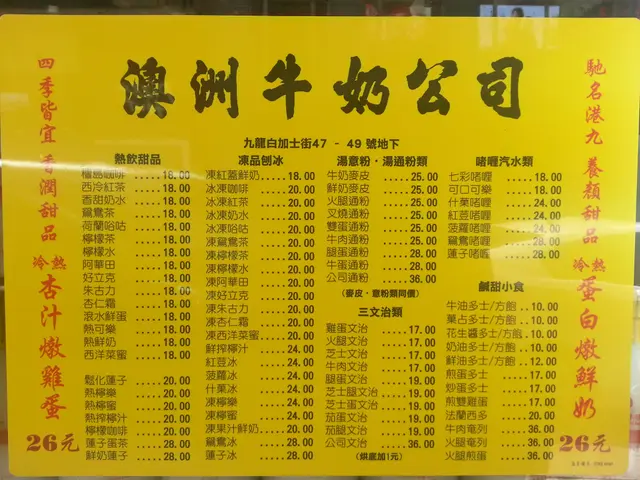 澳洲牛奶公司
九龍白加士街47 - 49 號地下
四季皆宜 香潤甜品
冷熱 杏汁燉雞蛋
26元
熱飲甜品
檀島咖啡 .....18.00
西冷紅茶 .....18.00
香甜奶水 .....18.00
鴛鴦茶 .....18.00
荷蘭哈咕 .....18.00
檸檬茶 .....18.00
檸檬水 .....18.00
阿華田 .....18.00
好立克 .....18.00
朱古力 .....18.00
杏仁霜 .....18.00
滾水鮮蛋 .....18.00
熱可樂 .....18.00
熱鮮奶 .....18.00
西洋菜蜜 .....18.00
鬆化蓮子 .....20.00
熱檸樂 .....20.00
熱檸蜜 .....20.00
熱搾檸汁 .....20.00
檸檬咖啡 .....20.00
蓮子蛋茶 .....28.00
鮮奶蓮子 .....28.00
凍品刨冰
凍紅蓋鮮奶 .....18.00
冰凍咖啡 .....20.00
冰凍紅茶 .....20.00
冰凍奶水 .....20.00
冰凍哈咕 .....20.00
凍鴛鴦茶 .....20.00
凍檸檬茶 .....20.00
凍檸檬水 .....20.00
凍阿華田 .....20.00
凍好立克 .....20.00
凍朱古力 .....20.00
凍杏仁霜 .....20.00
凍西洋菜蜜 .....20.00
鮮搾檸汁 .....24.00
紅荳冰 .....24.00
菠蘿冰 .....24.00
什菓冰 .....24.00
凍檸樂 .....24.00
凍檸蜜 .....24.00
凍菓汁鮮奶 .....20.00
鴛鴦冰 .....28.00
蓮子冰 .....28.00
湯意粉・湯通粉類
牛奶麥皮 .....25.00
鮮奶麥皮 .....25.00
火腿通粉 .....25.00
叉燒通粉 .....25.00
雙蛋通粉 .....25.00
牛肉通粉 .....25.00
腿蛋通粉 .....28.00
牛蛋通粉 .....28.00
公司通粉 .....36.00
(麥皮・意粉類同價)
三文治類
雞蛋文治 .....17.00
火腿文治 .....17.00
芝士文治 .....17.00
牛肉文治 .....17.00
腿蛋文治 .....19.00
芝士腿文治 .....19.00
芝士蛋文治 .....19.00
茄蛋文治 .....19.00
茄腿文治 .....19.00
公司文治 .....36.00
(烘底加1元)
啫喱汽水類
七彩啫喱 .....18.00
可口可樂 .....18.00
什菓啫喱 .....24.00
紅荳啫喱 .....24.00
菠蘿啫喱 .....24.00
鴛鴦啫喱 .....28.00
蓮子啫喱 .....28.00
鹹甜小食
牛油多士/方飽 ..10.00
菓占多士/方飽 ..10.00
花生醬多士/方飽 ..10.00
奶油多士/方飽 ..10.00
鮮油多士/方飽 ..12.00
煎蛋多士 .....17.00
炒蛋多士 .....17.00
煎雙雞蛋 .....17.00
法蘭西多 .....20.00
牛肉奄列 .....36.00
火腿奄列 .....36.00
火腿煎蛋 .....36.00
馳名港九 養顏甜品
冷熱 蛋白燉鮮奶
26元